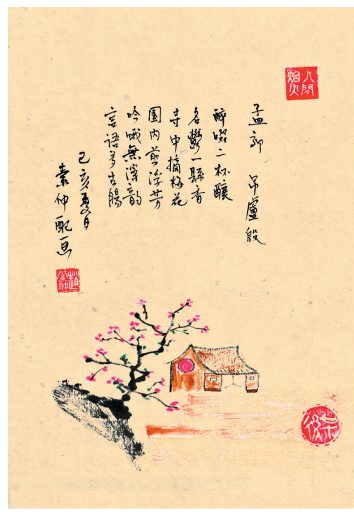 人間烟火
孟郊 吊盧殷
醉啜二杯釀
名鬱一縣香
寺中摘梅花
園内剪浮芳
吟哦無滓韵
言語多古腸
己亥五月
素仲配画